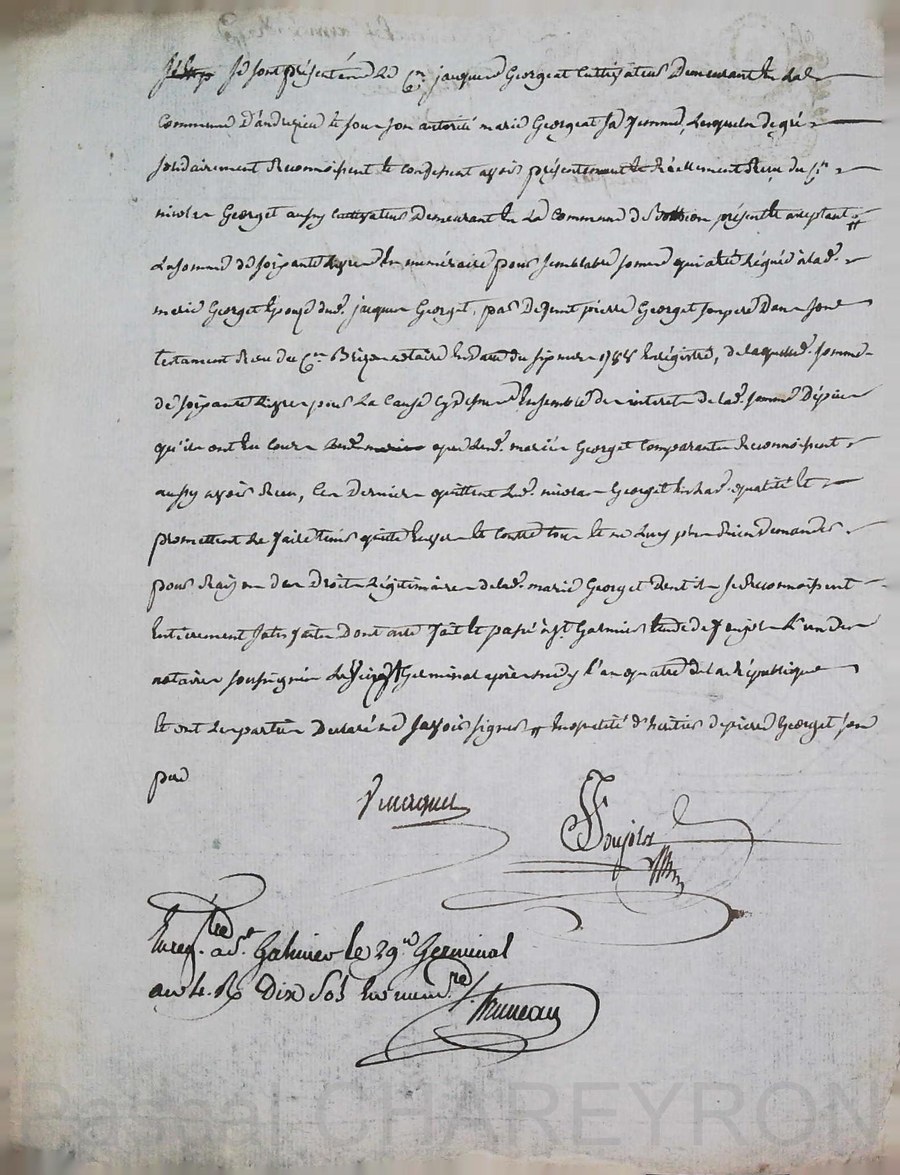 Se sont présentés Le Cn. jacque Georgeat Cultivateur Demeurant En La
Commune D'andrezieu et sous son autorité marie Georgeat sa femme, Lesquels de gré
solidairement Reconnoissent et confessent avoir présentement et Réellement Reçu du Cn.
nicolas Georget aussy Cultivateur Demeurant En La Commune de présent et acceptant
La somme de soixante Livres En numéraire pour semblable somme qui a été Léguée à lad.
marie Georget Epouse dud. jacque Georget, par Defunt pierre Georget son pere Dans son
testament Reçu du Cen notaire En date du six mars 1788 Enregistré, de laquelle somme
de soixante Livres pour La Cause cy dessus Ensemble des interets de lad. somme Depuis
qu'ils ont Eu cours que lad. mariée Georget Comparante Reconnoissent
aussy avoir Reçu, Ces Derniers quittent Led. nicolas Georget En sad. qualité et
promettent Le faire tenir quitte Envers et contre tous et ne Luy plus Rien Demander
pour Raison des Droits Légitimaires de lad. marie Georget Dont ils se Reconnoissent
Entièrement satisfaits Dont acte fait et passé à St. Galmier Etude de foujols L'un des
notaires soussignés Le Germinal après midy l'an quatre de la République
Et ont Les parties Declaré ne savoir signer En qualité d'heritier de pierre Georget son
pere
foujols
Enregtré. à St. Galmier le 29 Germinal
an 4. R. Dix Sols En numre.
Bruneau
Pascal CHAREYRON